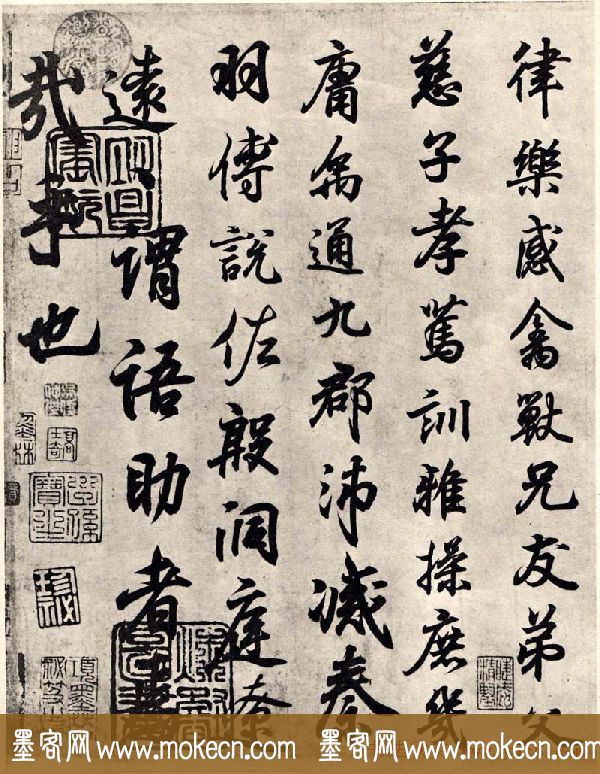 律樂感禽獸兄友弟父
慈子孝篤訓雅操庶幾
庸禹通九郡沛滅秦
羽傅說佐殷洞庭
遠謂語助者焉
哉乎也
墨客网 www.mokecn.com 墨客网 www.mokecn.com